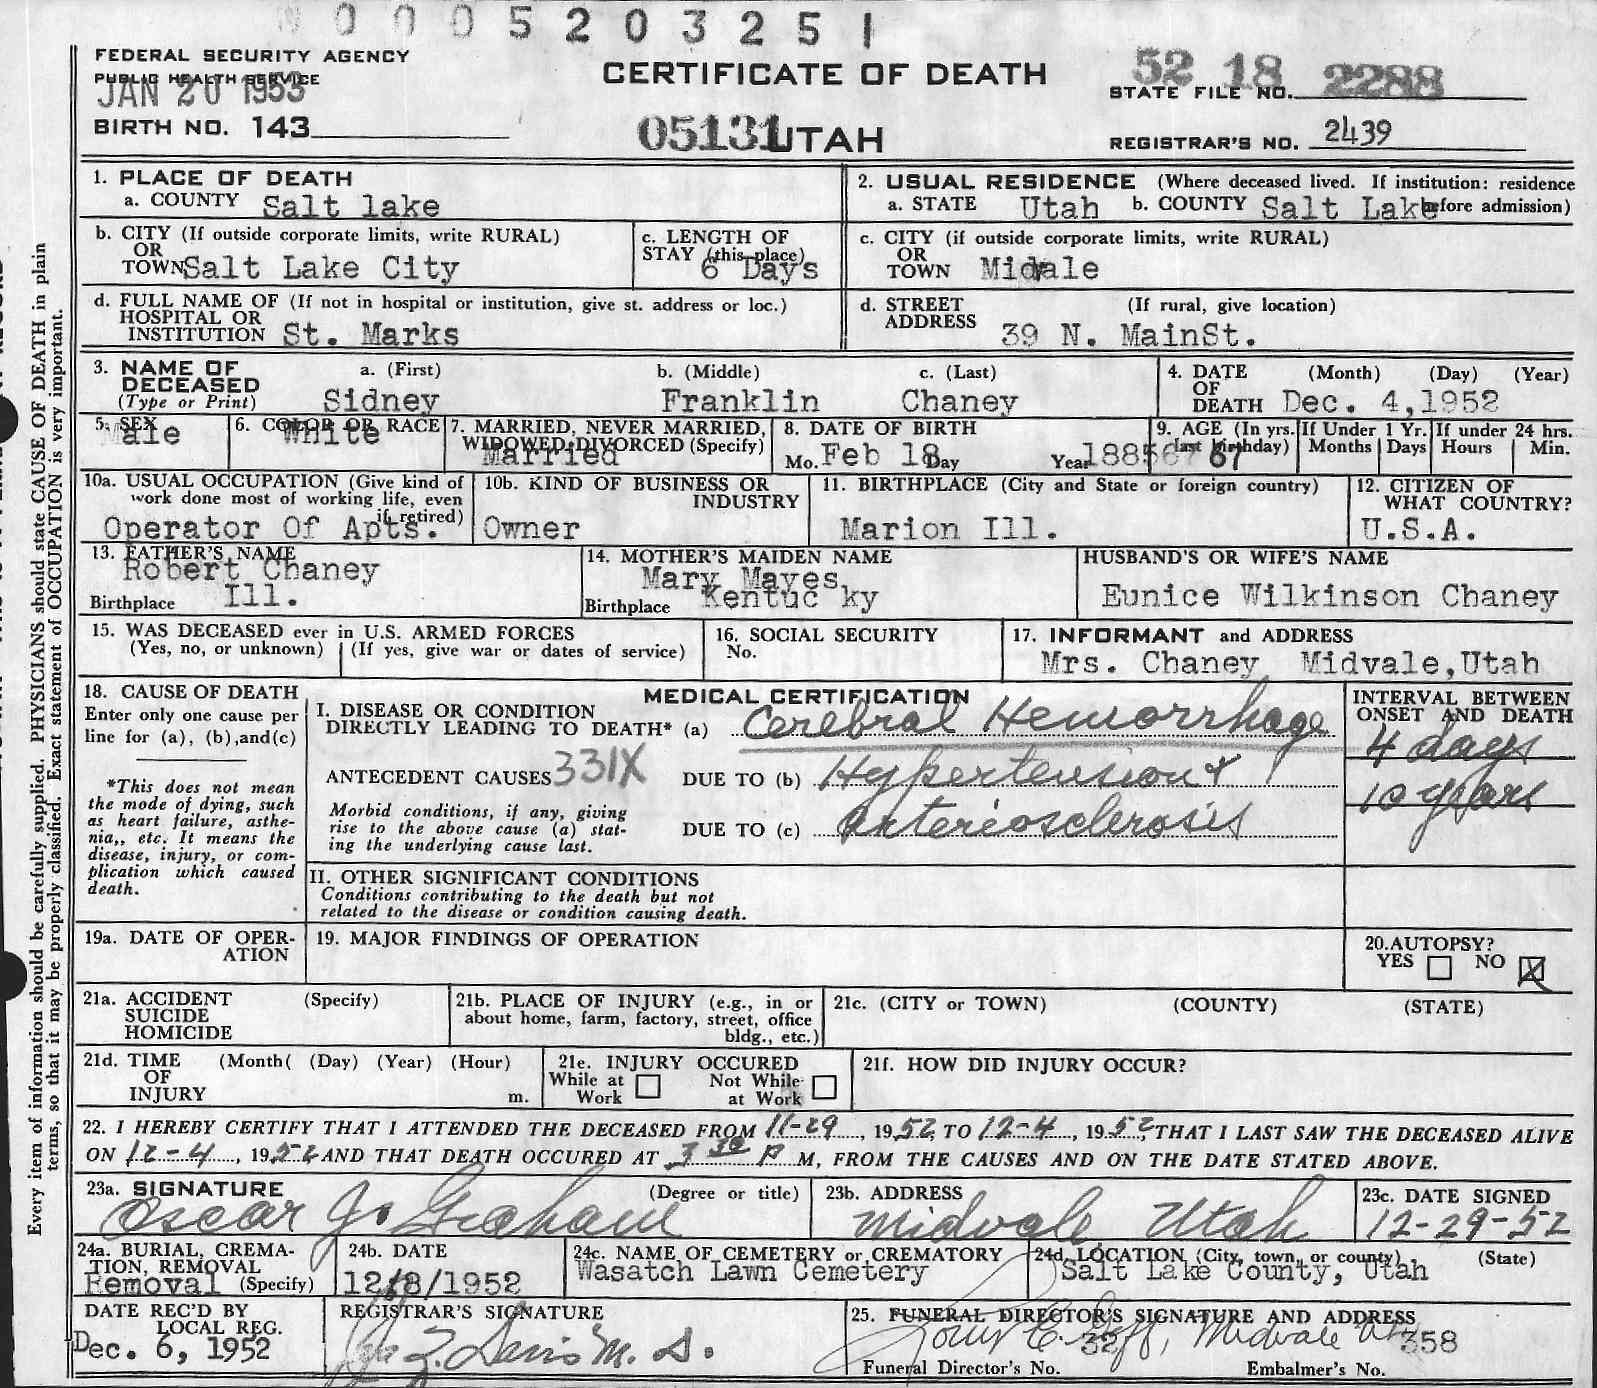 0005203251
FEDERAL SECURITY AGENCY
PUBLIC HEALTH SERVICE
JAN 20 1953
CERTIFICATE OF DEATH
52 18 2288
STATE FILE NO.
BIRTH NO. 143
05131 UTAH
REGISTRAR'S NO. 2439
1. PLACE OF DEATH
a. COUNTY Salt lake
2. USUAL RESIDENCE (Where deceased lived. If institution: residence before admission)
a. STATE Utah b. COUNTY Salt Lake
b. CITY (If outside corporate limits, write RURAL)
OR
TOWN Salt Lake City
c. LENGTH OF
STAY (this place)
6 Days
c. CITY (if outside corporate limits, write RURAL)
OR
TOWN Midvale
d. FULL NAME OF (If not in hospital or institution, give st. address or loc.)
HOSPITAL OR
INSTITUTION St. Marks
d. STREET (If rural, give location)
ADDRESS 39 N. MainSt.
3. NAME OF
DECEASED
(Type or Print)
a. (First) b. (Middle) c. (Last)
Sidney Franklin Chaney
4. DATE (Month) (Day) (Year)
OF
DEATH Dec. 4,1952
5. SEX
Male
6. COLOR OR RACE
White
7. MARRIED, NEVER MARRIED,
WIDOWED, DIVORCED (Specify)
Married
8. DATE OF BIRTH
Mo. Feb 18 Day Year 1885
9. AGE (In yrs. last birthday)
67
If Under 1 Yr.
Months Days
If under 24 hrs.
Hours Min.
10a. USUAL OCCUPATION (Give kind of
work done most of working life, even
if retired)
Operator Of Apts.
10b. KIND OF BUSINESS OR
INDUSTRY
Owner
11. BIRTHPLACE (City and State or foreign country)
Marion Ill.
12. CITIZEN OF
WHAT COUNTRY?
U.S.A.
13. FATHER'S NAME
Robert Chaney
Birthplace Ill.
14. MOTHER'S MAIDEN NAME
Mary Mayes
Birthplace Kentuc ky
HUSBAND'S OR WIFE'S NAME
Eunice Wilkinson Chaney
15. WAS DECEASED ever in U.S. ARMED FORCES
(Yes, no, or unknown) (If yes, give war or dates of service)
16. SOCIAL SECURITY
No.
17. INFORMANT and ADDRESS
Mrs. Chaney Midvale,Utah
18. CAUSE OF DEATH
Enter only one cause per
line for (a), (b),and(c)
*This does not mean
the mode of dying, such
as heart failure, asthe-
nia,, etc. It means the
disease, injury, or com-
plication which caused
death.
MEDICAL CERTIFICATION
I. DISEASE OR CONDITION
DIRECTLY LEADING TO DEATH* (a) Cerebral Hemorrhage
ANTECEDENT CAUSES 331X DUE TO (b) Hypertension &
Morbid conditions, if any, giving
rise to the above cause (a) stat-
ing the underlying cause last.
DUE TO (c) Arteriosclerosis
INTERVAL BETWEEN
ONSET AND DEATH
4 days
10 years
II. OTHER SIGNIFICANT CONDITIONS
Conditions contributing to the death but not
related to the disease or condition causing death.
19a. DATE OF OPER-
ATION
19. MAJOR FINDINGS OF OPERATION
20.AUTOPSY?
YES NO X
21a. ACCIDENT (Specify)
SUICIDE
HOMICIDE
21b. PLACE OF INJURY (e.g., in or
about home, farm, factory, street, office
bldg., etc.)
21c. (CITY or TOWN) (COUNTY) (STATE)
21d. TIME (Month( (Day) (Year) (Hour)
OF
INJURY m.
21e. INJURY OCCURED
While at Work Not While at Work
21f. HOW DID INJURY OCCUR?
22. I HEREBY CERTIFY THAT I ATTENDED THE DECEASED FROM 11-29, 1952 TO 12-4, 1952, THAT I LAST SAW THE DECEASED ALIVE
ON 12-4, 1952 AND THAT DEATH OCCURED AT 3 30 P M, FROM THE CAUSES AND ON THE DATE STATED ABOVE.
23a. SIGNATURE (Degree or title)
Oscar J. Graham
23b. ADDRESS
Midvale Utah
23c. DATE SIGNED
12-29-52
24a. BURIAL, CREMA-
TION, REMOVAL
Removal (Specify)
24b. DATE
12/8/1952
24c. NAME OF CEMETERY or CREMATORY
Wasatch Lawn Cemetery
24d. LOCATION (City, town, or county) (State)
Salt Lake County, Utah
DATE REC'D BY
LOCAL REG.
Dec. 6, 1952
REGISTRAR'S SIGNATURE
Davis M. D.
25. FUNERAL DIRECTOR'S SIGNATURE AND ADDRESS
Midvale
32 358
Funeral Director's No. Embalmer's No.
Every item of information should be carefully supplied. PHYSICIANS should state CAUSE OF DEATH in plain
terms, so that it may be properly classified. Exact statement of OCCUPATION is very important.